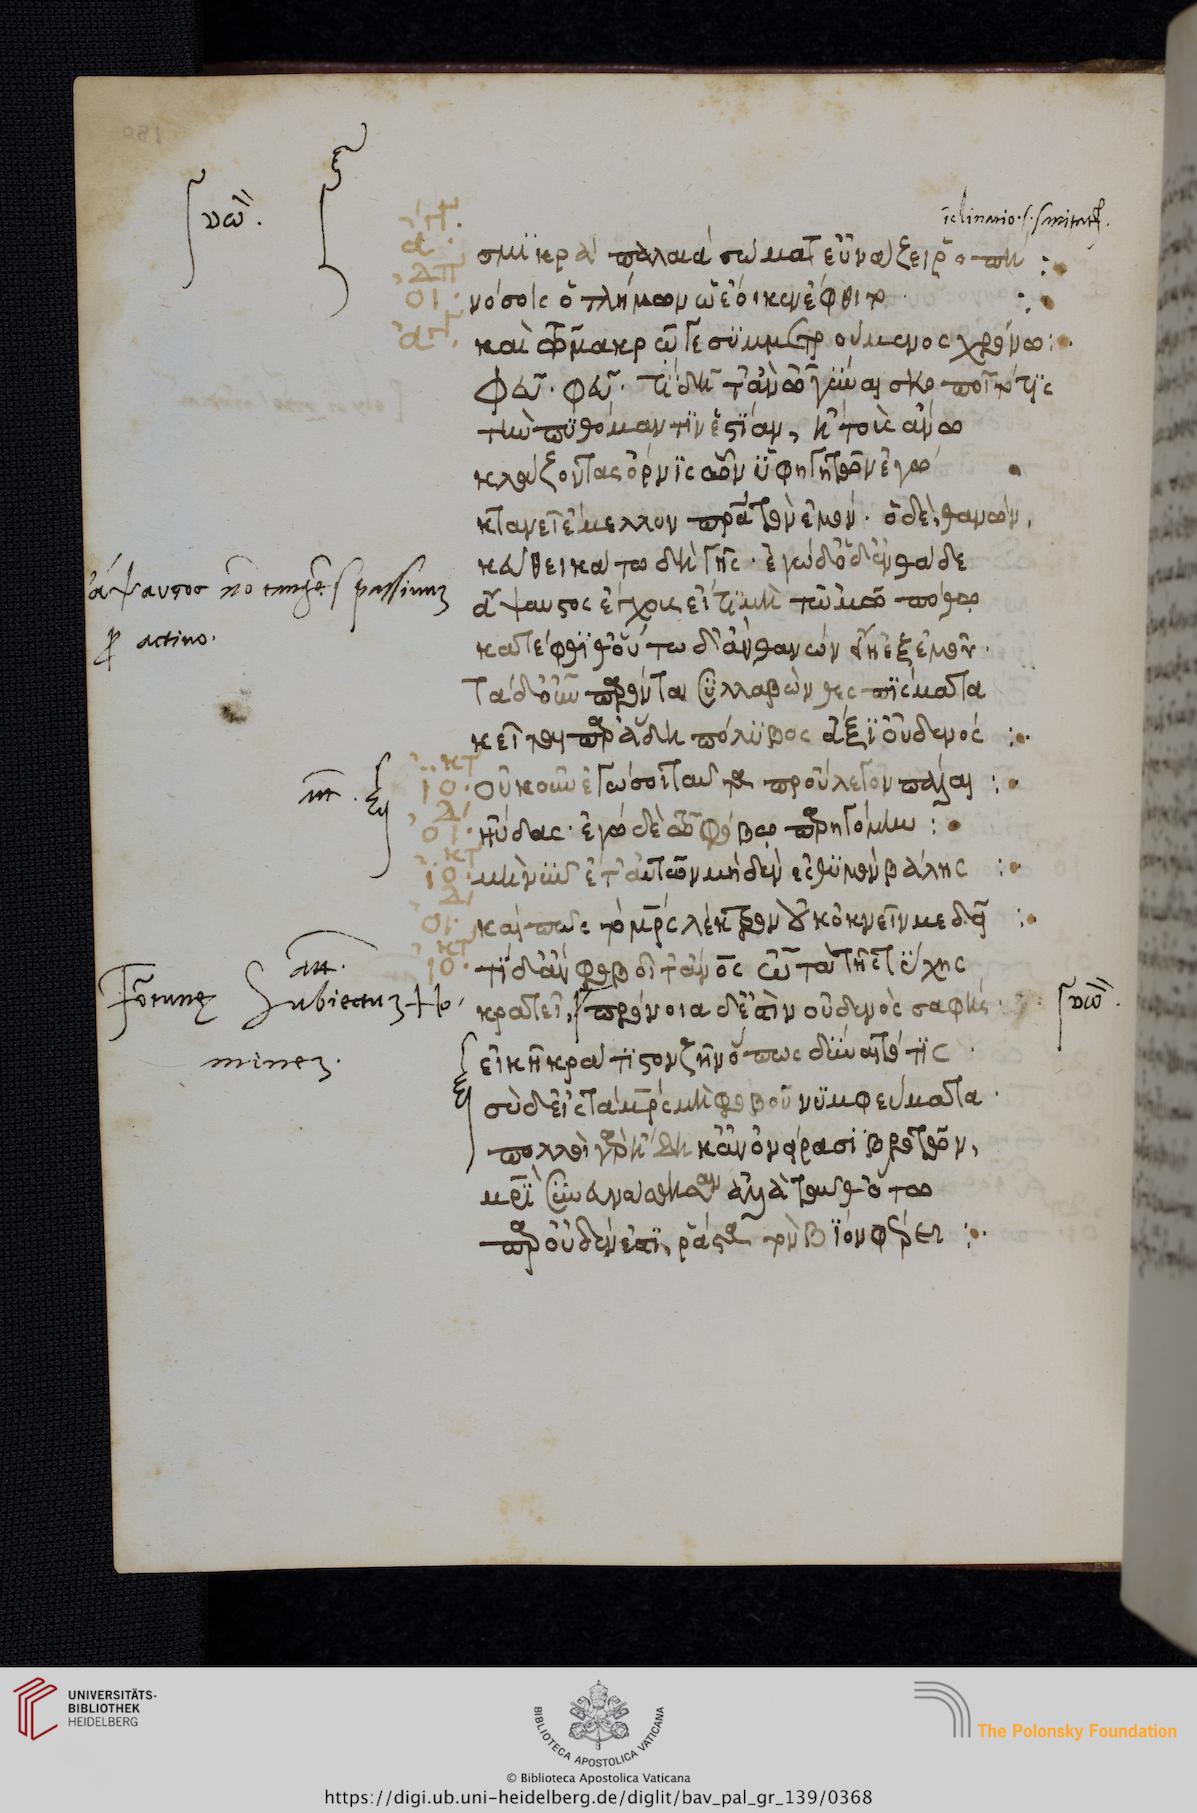 180
νῶ.
inclinatio. s. sanitatis.
ἄγγ.
σμικρὰ παλαιὰ σώματ' εὐνάζει ῥοπή :
οι. νόσοις ὁ τλήμων ὡς ἔοικεν ἔφθιτο
ἄγγ. καὶ τῷ μακρῷ γε συμμετρούμενος χρόνῳ :
φεῦ. φεῦ. τί δῆτ' ἂν ὦ γύναι σκοποῖτό τις
τὴν πυθόμαντιν ἑστίαν, ἢ τοὺς ἄνω
κλάζοντας ὄρνις ὧν ὑφηγητῶν ἐγὼ
κτανεῖν ἔμελλον πατέρα τὸν ἐμόν. ὁ δὲ θανὼν,
κεύθει κάτω δὴ γῆς. ἐγὼ δ' ὅδ' ἐνθάδε
ἄψαυστος non tangens passivum
ἄψαυστος ἔγχους εἴ τι μὴ τὠμῷ πόθῳ
pro activo.
κατέφθιθ' οὕτω δ' ἂν θανὼν εἴη 'ξ ἐμοῦ.
τὰ δ' οὖν παρόντα συλλαβὼν θεσπίσματα
κεῖται παρ' ἅδῃ πόλυβος ἄξι' οὐδενός :
ιο. οὔκουν ἐγώ σοι ταῦτα προὔλεγον πάλαι :
οι. ηὔδας. ἐγὼ δὲ τῷ φόβῳ παρηγόμην :
ιο. μὴ νῦν ἔτ' αὐτῶν μηδὲν ἐς θυμὸν βάλῃς :
οι. καὶ πῶς τὸ μητρὸς λέκτρον οὐκ ὀκνεῖν με δεῖ :
ιο. τί δ' ἂν φοβοῖτ' ἄνθρωπος ᾧ τὰ τῆς τύχης
Fortunę subiectum ho-
minem.
κρατεῖ, πρόνοια δ' ἐστὶν οὐδενὸς σαφής
νῶ.
εἰκῆ κράτιστον ζῆν ὅπως δύναιτό τις.
σὺ δ' εἰς τὰ μητρὸς μὴ φοβοῦ νυμφεύματα.
πολλοὶ γὰρ ἤδη κἀν ὀνείρασι βροτῶν,
μητρὶ ξυνευνάσθησαν ἀλλὰ ταῦθ' ὅτῳ
παρ' οὐδέν ἐστι, ῥᾷστα τὸν βίον φέρει :
UNIVERSITÄTS-
BIBLIOTHEK
HEIDELBERG
BIBLIOTECA APOSTOLICA VATICANA
The Polonsky Foundation
© Biblioteca Apostolica Vaticana
https://digi.ub.uni-heidelberg.de/diglit/bav_pal_gr_139/0368